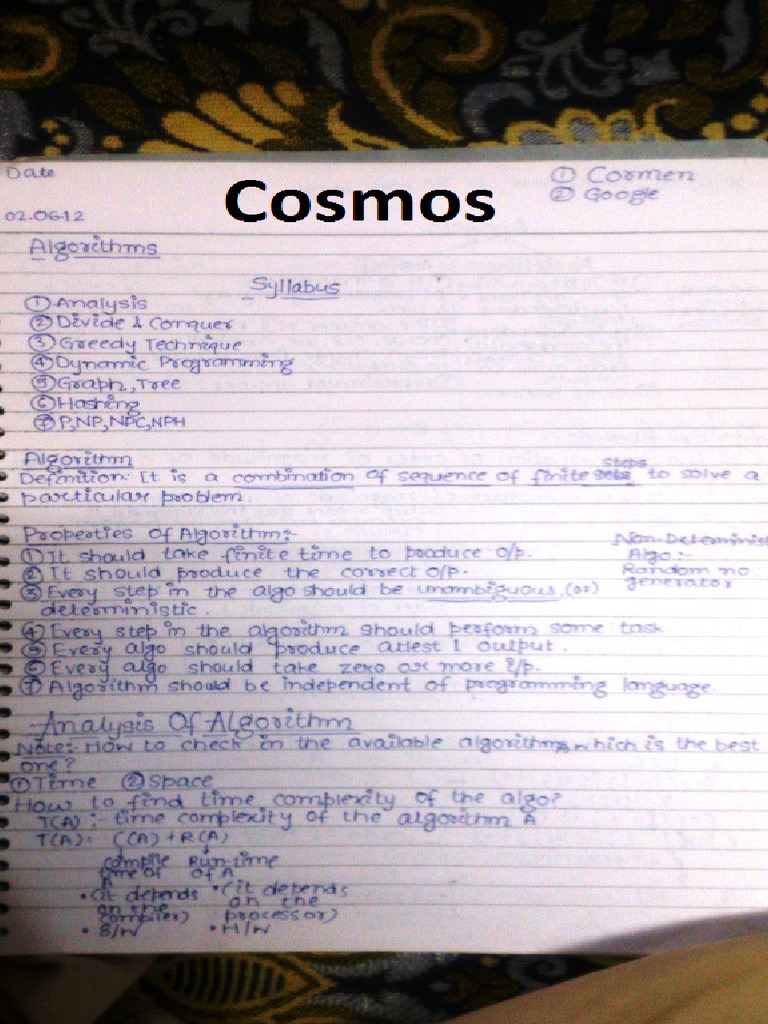 Date
Cosmos
① Cormen
② Google
02.06.12
Algorithms
Syllabus
① Analysis
② Divide & Conquer
③ Greedy Technique
④ Dynamic Programming
⑤ Graph, Tree
⑥ Hashing
⑦ P,NP,NPC,NPH
Algorithm
steps
Definition: It is a combination of sequence of finite sets to solve a
particular problem.
Properties of Algorithm:-
Non-Determinist
① It should take finite time to produce o/p.
Algo:-
② It should produce the correct o/p.
Random no.
③ Every step in the algo should be unambiguous (or)
generator
deterministic.
④ Every step in the algorithm should perform some task
⑤ Every algo should produce atlest 1 output.
⑥ Every algo should take zero or more i/p.
⑦ Algorithm should be independent of programming language.
Analysis Of Algorithm
Note:- How to check in the available algorithms, which is the best
one?
① Time ② Space
How to find time complexity of the algo?
T(A) :- time complexity of the algorithm A
T(A) = C(A) + R(A)
compile Run-time
time of of A
A
• (it depends • (it depends
on the on the
compiler) processor)
• S/W • H/W